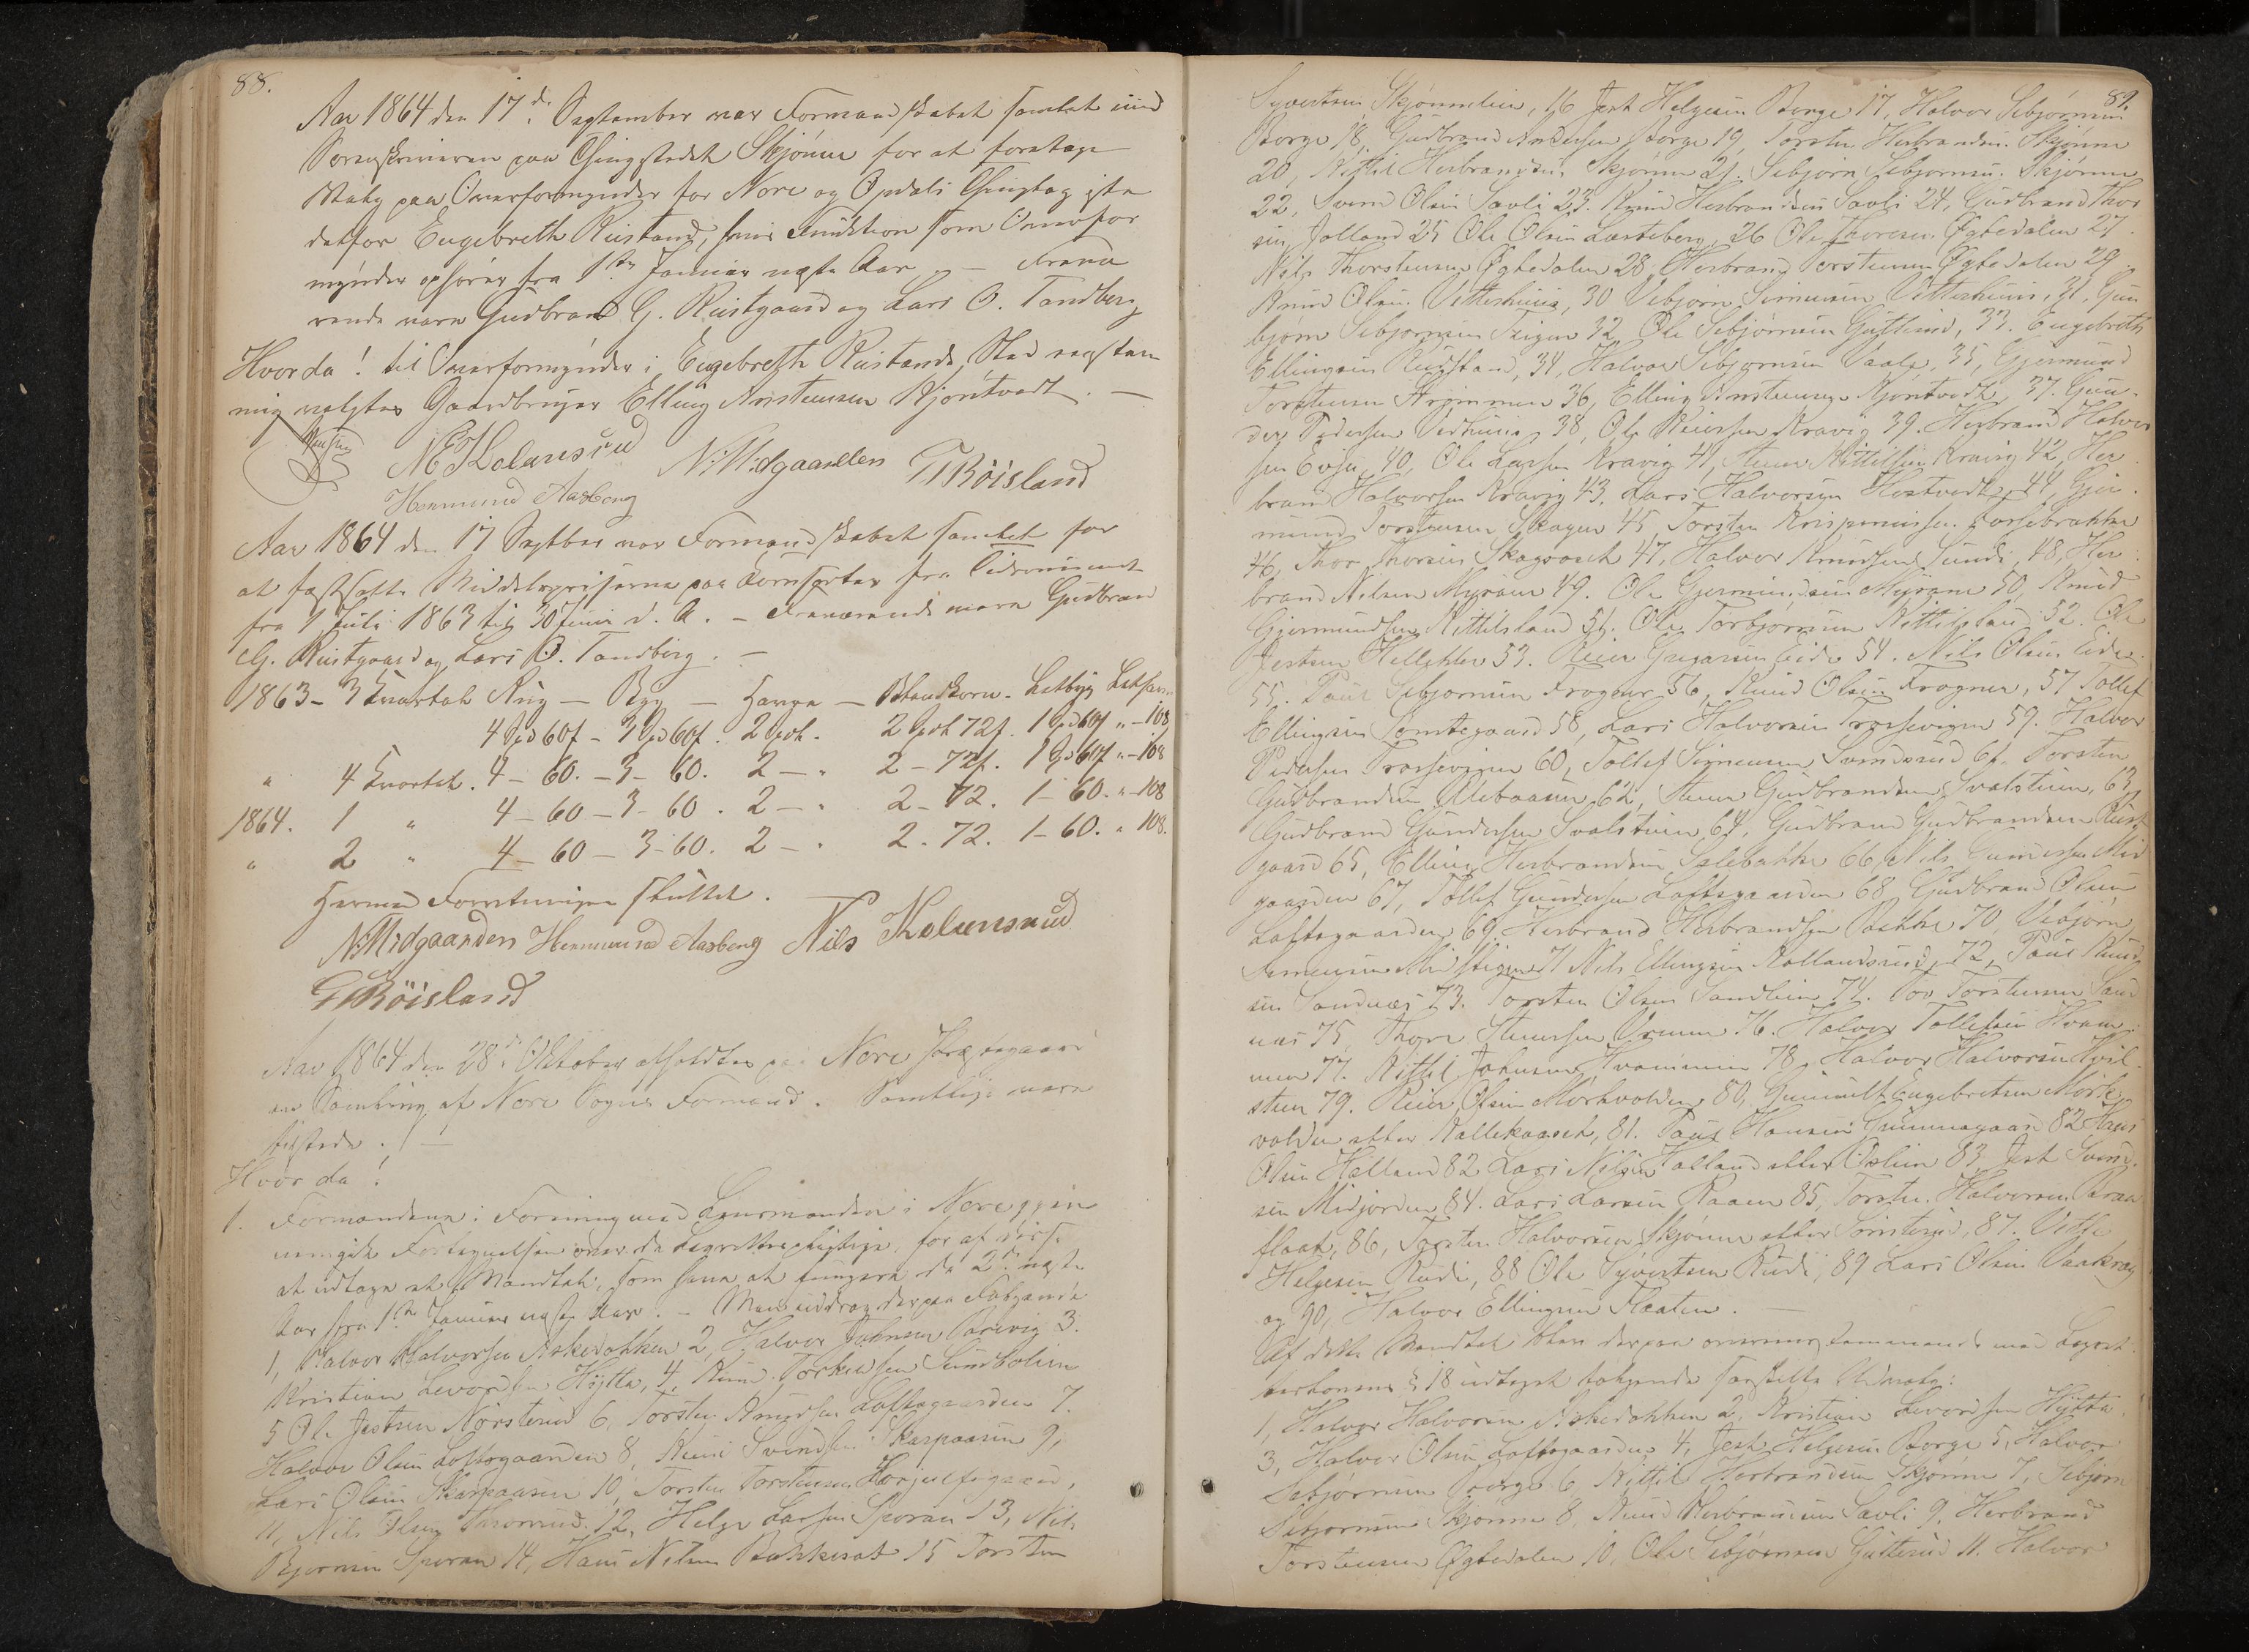 88.
Aar 1864 den 17de September var Formandskabet samlet med
Sorenskriveren paa Thingstedet Skjönne for at foretage
Valg paa Overformynder for Nore og Opdals Thinglag iste
detfor Engebreth Rustand, hvis Funktion som Overfor
mynder ophörer fra 1ste Januar næste Aar. — Fravæ
rende vare Gudbrand G. Rustgaard og Lars O. Tandberg
Hvorda! til Overformynder i Engebreth Rustands Sted
valgtes Gaardbruger Elling Kristensen Kjöntvedt. —
NE Kolunsrud N. Midgaarden T Röisland
Hermund Aasberg
Aar 1864 den 17 Septbr var Formandskabet samlet for
at fastsatte Middelspriserne paa Kornsorter for Tidsrummet
fra 1 Juli 1863 til 30 Juni d. A. — Fraværende vare Gudbran
G. Rustgaard og Lars O. Tandberg. —
1863 - 3 Kvartal Rug — Byg — Havre — Blandkorn -
4 60 f - 3 60 f. 2 2 72 f. 1 60 f " - 108
" 4 Kvartal. 4 - 60. - 3 - 60. 2 - " 2 - 72 f. 1 60 f " - 108
1864. 1 " 4 - 60 - 3 - 60. 2 - " 2 - 72. 1 - 60. " - 108
" 2 " 4 - 60 - 3 - 60. 2 - " 2 - 72. 1 - 60. " 108.
Hermed Forretningen sluttet.
N. Midgaarden Hermund Aasberg Nils Kolunsrud
T Röisland
Aar 1864 den 28de Oktober afholdtes paa Nore Præstegaard
en Samling af Nore Sogns Formænd. Samtlige vare
tilstede. —
Hvor da!
1. Formændene i Forening med Lensmanden i Nore gjen
nemgik Fortegnelsen over de Lagrettepligtige for af disse
at udtage et Mandtal, som have at fungere de 2de næste
Aar fra 1ste Januar næste Aar. — Man uddrog derpaa Fölgende
1, Halvor Halvorsen Askedokken 2, Halvor Johnsen 3.
Kristian Levordsen Hytta, 4. Knud Torkelsen
5 Ole Jestsen Nörsterud 6, Torsten Knudsen Loftsgaarden 7.
Halvor Olsen Loftsgaarden 8, Knud Svendsen Skarpaasen 9,
Lars Olsen Skarpaasen 10, Torsten Torstensen
11, Nils Olsen 12, Helge Larsen Sporan 13, Nils
Bjornsen Sporan 14, Hans Nilsen Bakkerud 15 Torsten
89.
Syvertsen Skjönnelien, 16 Jest Helgesen Borge 17, Halvor Sebjörnsen
Borge 18, Gudbrand Andersen Borge 19, Torsten Herbrandsen Skjönne
20, Kittil Herbrandsen Skjönne 21. Sebjörn Sebjörnsen Skjönne
22, Svend Olsen Savli 23. Knud Herbrandsen Savli 24, Gudbrand Thor
sen Jolland 25 Ole Olsen Lærteberg 26 Ole Thoresen Øgtedalen 27.
Nils Thorstensen Øgtedalen 28, Herbrand Torstensen Øgtedalen 29.
Knud Olsen Vetterhuus, 30 Vebjörn Simensen Vetterhuus, 31, Gun
bjorn Sebjornsen 32, Ole Sebjörnsen Gutterud, 33. Engebreth
Ellingsen Rustand, 34, Halvor Sebjornsen Vaale, 35, Gjermund
Torstensen 36, Elling Kristensen Kjöntvedt, 37. Gun
der Pedersen Vedhuus 38, Ole Reiersen Kravig 39. Herbrand Halvor
sen Evju 40, Ole Larsen Kravig 41, Steen Kittilsen Kravig 42, Her
brand Halvorsen Kravig 43. Lars Halvorsen 44, Gjer
mund Torstensen Skagen 45 Torsten
46, Thor Thorsen 47, Halvor Knudsen 48, Her
brand Nilsen Myrane 49. Ole Gjermundsen Myrane 50, Knud
Gjermundsen Kittilsland 51. Ole Torbjörnsen Kittilsland 52. Ole
Jestsen 53. Reier Gregarsen Eide 54. Nils Olsen Eide
55. Paul Sebjornsen Frogner 56, Knud Olsen Frogner, 57 Tollef
Ellingsen Tomtegaard 58, Lars Halvorsen 59. Halvor
Pedersen 60, Tollef Simensen Svendsrud 61. Torsten
Gudbrandsen 62, Steen Gudbrandsen Svalsteen, 63,
Gudbrand Gundersen Svalsteen 64, Gudbrand Gudbrandsen Rust
gaard 65, Elling Herbrandsen 66, Nils Gundersen Mid
gaarden 67, Tollef Gundersen Loftsgaarden 68 Gudbrand Olsen
Loftsgaarden 69. Herbrand Herbrandsen Bakke 70, Vebjörn
71 Nils Ellingsen 72, Paul Knud
sen Sandnæs 73. Torsten Olsen Sandlien 74. Tov Torstensen Sand
næs 75, Thore Steensen 76. Halvor Tollefsen Hvam
men 77. Kittil Johnsen Hvammen 78, Halvor Halvorsen Hvil
steen 79. Reier Olsen Mörkvolden, 80, Gunnulf Engebretsen Mörk
volden eller 81. Paul Hansen 82 Hans
Olsen Halland 82 Lars Nilsen Halland eller 83, Jest Svend
sen Midjorden 84. Lars Larsen Raaen 85, Torsten Halvorsen
flaat, 86, Torsten Halvorsen Skjönne eller 87. Vetle
Helgesen Rudi, 88 Ole Syvertsen Rudi, 89 Lars Olsen
og 90, Halvor Ellingsen Flaaten. —
Af dette Mandtal blev derpaa overensstemmende med
§ 18 udtaget fölgende særskilte Udvalg:
1, Halvor Halvorsen Askedokken 2, Kristian Levordsen Hytta
3, Halvor Olsen Loftsgaarden 4, Jest Helgesen Borge 5, Halvor
Sebjörnsen Borge 6 Kittil Herbrandsen Skjönne 7, Sebjörn
Sebjornsen Skjönne 8, Knud Herbrandsen Savli 9, Herbrand
Torstensen Øgtedalen 10, Ole Sebjörnsen Gutterud 11. Halvor